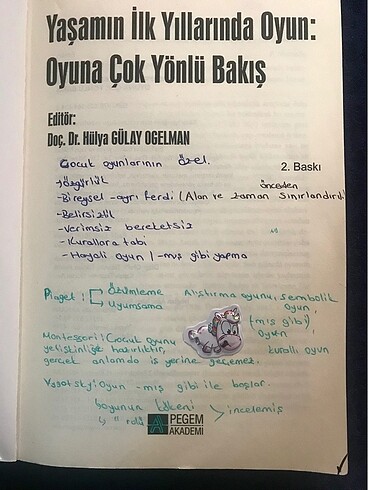 Yaşamın İlk Yıllarında Oyun:
Oyuna Çok Yönlü Bakış
Editör:
Doç. Dr. Hülya GÜLAY OGELMAN
Çocuk oyunlarının özel.
2. Baskı
→ özgürlük
önceden
- Bireysel - ayrı ferdi (Alan ve zaman sınırlandırıl
- Belirsizlik
- Verimsiz bereketsiz
- Kurallara tabi
- Hayali oyun / -mış gibi yapma
Piaget: Özümleme
Uyumsama
Alıştırma oyunu, sembolik
oyun,
(mış gibi)
oyun
kurallı oyun
Montessori: Çocuk oyunu
yetişkinliğe hazırlıktır,
gerçek anlamda iş yerine geçemez.
Vygotsky: Oyun -mış gibi ile başlar.
oyunun kökeni
" rolü
> incelemiş
PEGEM
AKADEMİ